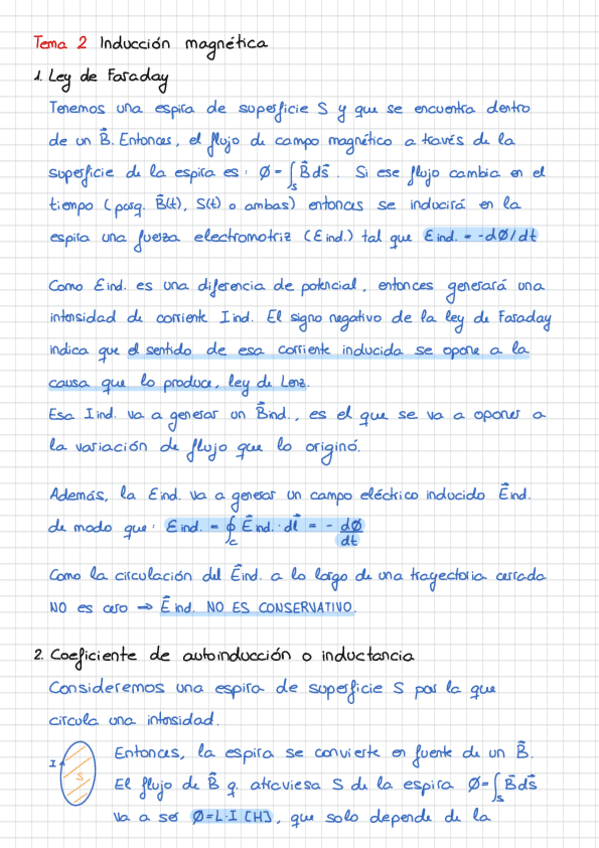 Tema 2 Inducción magnética
1. Ley de Faraday
Tenemos una espira de superficie S y que se encuentra dentro
de un B⃗. Entonces, el flujo de campo magnético a través de la
superficie de la espira es: Ø = ∫ₛ B⃗ ds⃗. Si ese flujo cambia en el
tiempo (porq. B⃗(t), S(t) o ambas) entonces se inducirá en la
espira una fuerza electromotriz (Ɛ ind.) tal que Ɛ ind. = -dØ/dt
Como Ɛ ind. es una diferencia de potencial, entonces generará una
intensidad de corriente I ind. El signo negativo de la ley de Faraday
indica que el sentido de esa corriente inducida se opone a la
causa que lo produce, ley de Lenz.
Esa I ind. va a generar un B⃗ ind., es el que se va a oponer a
la variación de flujo que lo originó.
Además, la Ɛ ind. va a generar un campo eléctrico inducido E⃗ ind.
de modo que: Ɛ ind. = ∮c E⃗ ind. · dl⃗ = - dØ/dt
Como la circulación del E⃗ ind. a lo largo de una trayectoria cerrada
NO es cero → E⃗ ind. NO ES CONSERVATIVO.
2. Coeficiente de autoinducción o inductancia
Consideremos una espira de superficie S por la que
circula una intensidad.
I S
Entonces, la espira se convierte en fuente de un B⃗.
El flujo de B⃗ q. atraviesa S de la espira Ø = ∫ₛ B⃗ ds⃗
va a ser Ø = L·I [H], que solo depende de la